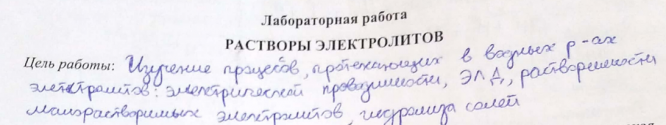 Лабораторная работа
РАСТВОРЫ ЭЛЕКТРОЛИТОВ
Цель работы: Изучение процесов, протекающих в водных р-ах
электролитов: электрической проводимости, ЭЛД, растворимости
малорастворимых электролитов, гидролиза солей